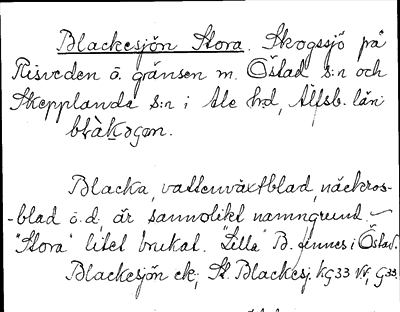 Blackesjön Stora. Skogssjö på
Risveden ö. gränsen m. Östad s:n och
Skepplanda s:n i Ale hrd, Älfsb. län
Blacka, vattenväxtblad, näckros-
-blad o. d, är sannolikt namngrund. –
"Stora" litet brukat. "Lilla" B. finnes i Östad.
Blackesjön ek, St. Blackesj. KG33 Vf, G33.